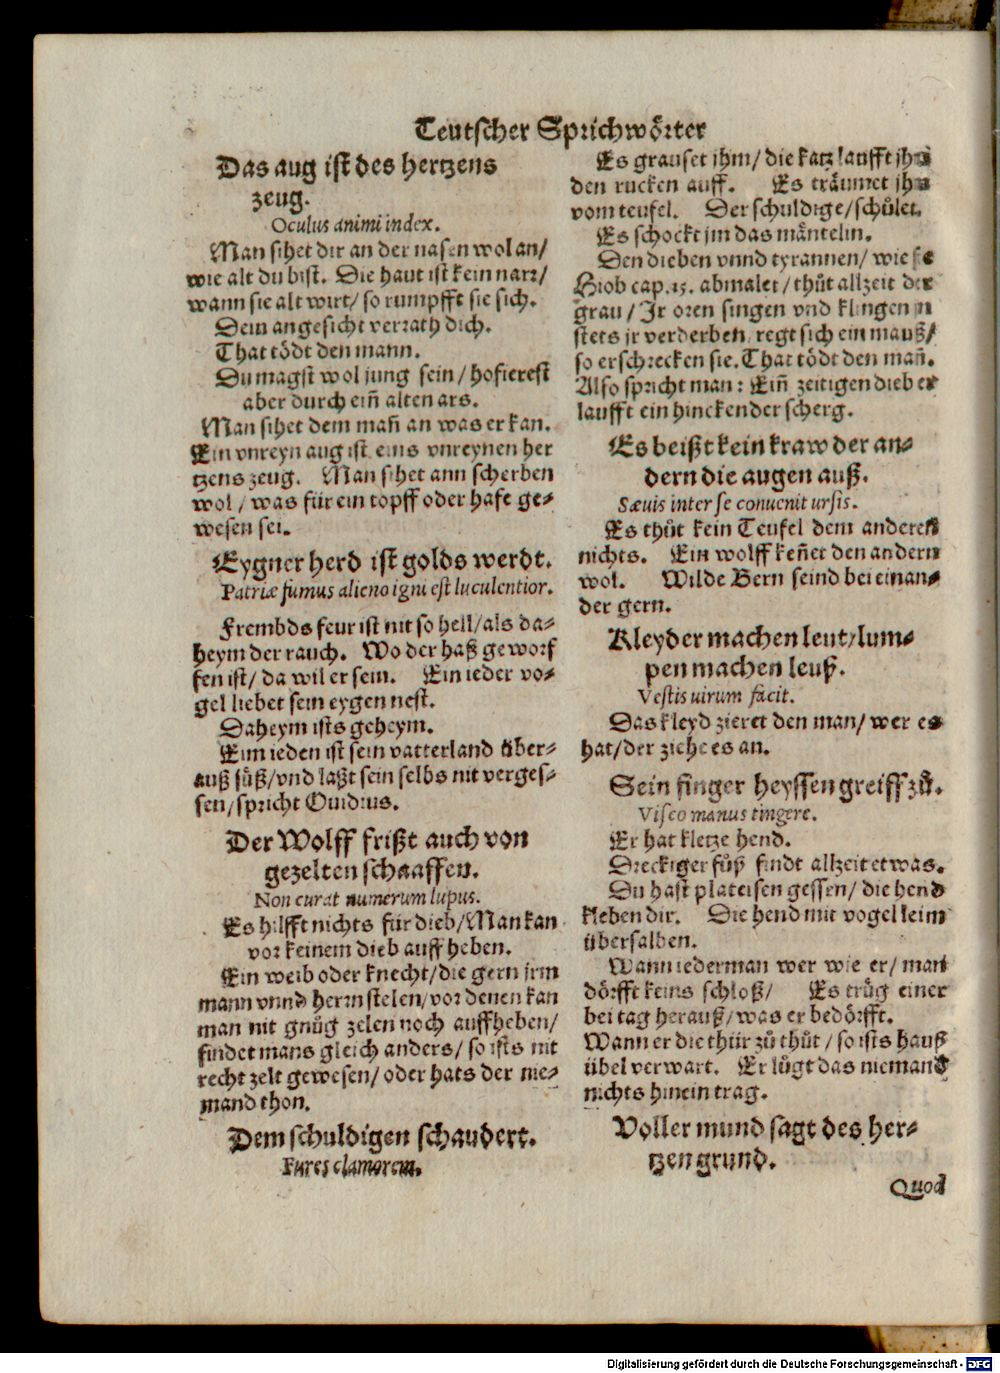 Teutscher Sprichwörter
Das aug ist des hertzens
zeug.
Oculus animi index.
Man sihet dir an der nasen wol an/
wie alt du bist. Die haut ist kein narr/
wann sie alt wirt/ so rumpfft sie sich.
Dein angesicht verrath dich.
That tödt den mann.
Du magst wol jung sein/ hofierest
aber durch ein̄ alten ars.
Man sihet dem man̄ an was er kan.
Ein vnreyn aug ist eins vnreynen her
tzens zeug. Man sihet ann scherben
wol/ was für ein topff oder hafe ge-
wesen sei.
Eygner herd ist golds werdt.
Patriæ fumus alieno igni est luculentior.
Frembds feur ist nit so hell/ als da-
heym der rauch. Wo der haß geworf
fen ist/ da wil er sein. Ein ieder vo-
gel liebet sein eygen nest.
Daheym ists geheym.
Eim ieden ist sein vatterland über-
auß süß/ vnd laßt sein selbs nit verges-
sen/ spricht Ouidius.
Der Wolff frißt auch von
gezelten schaaffen.
Non curat numerum lupus.
Es hilfft nichts für dieb/ Man kan
vor keinem dieb auff heben.
Ein weib oder knecht/ die gern jrm
mann vnnd herrn stelen/ vor denen kan
man nit gnůg zelen noch auffheben/
findet mans gleich anders/ so ists nit
recht zelt gewesen/ oder hats der nie-
mand thon.
Dem schuldigen schaudert.
Fures clamorem.
Es grauset jhm/ die katz laufft jhm
den rucken auff. Es träumet jhm
vom teufel. Der schuldige/ schület.
Es schockt jm das mäntelin.
Den dieben vnnd tyrannen/ wie sie
Hiob cap. 15. abmalet/ thůt allzeit der
grau/ Jr oren singen vnd klingen jn
stets jr verderben, regt sich ein mauß/
so erschrecken sie. That tödt den man̄.
Also spricht man: Ein̄ zeitigen dieb er
laufft ein hinckender scherg.
Es beißt kein kraw der an-
dern die augen auß.
Sæuis inter se conuenit ursis.
Es thůt kein Teufel dem anderen
nichts. Ein wolff ken̄et den andern
wol. Wilde Bern seind bei einan-
der gern.
Kleyder machen leut/ lum-
pen machen leuß.
Vestis uirum facit.
Das kleyd zieret den man/ wer es
hat/ der ziehe es an.
Sein finger heyssen greiff zů.
Visco manus tingere.
Er hat kletze hend.
Dreckiger fůß findt allzeit etwas.
Du hast plateisen gessen/ die hend
kleben dir. Die hend mit vogel leim
übersalben.
Wann iederman wer wie er/ man
dörfft keins schloß/ Es trůg einer
bei tag herauß/ was er bedörfft.
Wann er die thür zů thůt/ so ists hauß
übel verwart. Er lůgt das niemand
nichts hinein trag.
Voller mund sagt des her-
tzen grund.
Quod
Digitalisierung gefördert durch die Deutsche Forschungsgemeinschaft - DFG